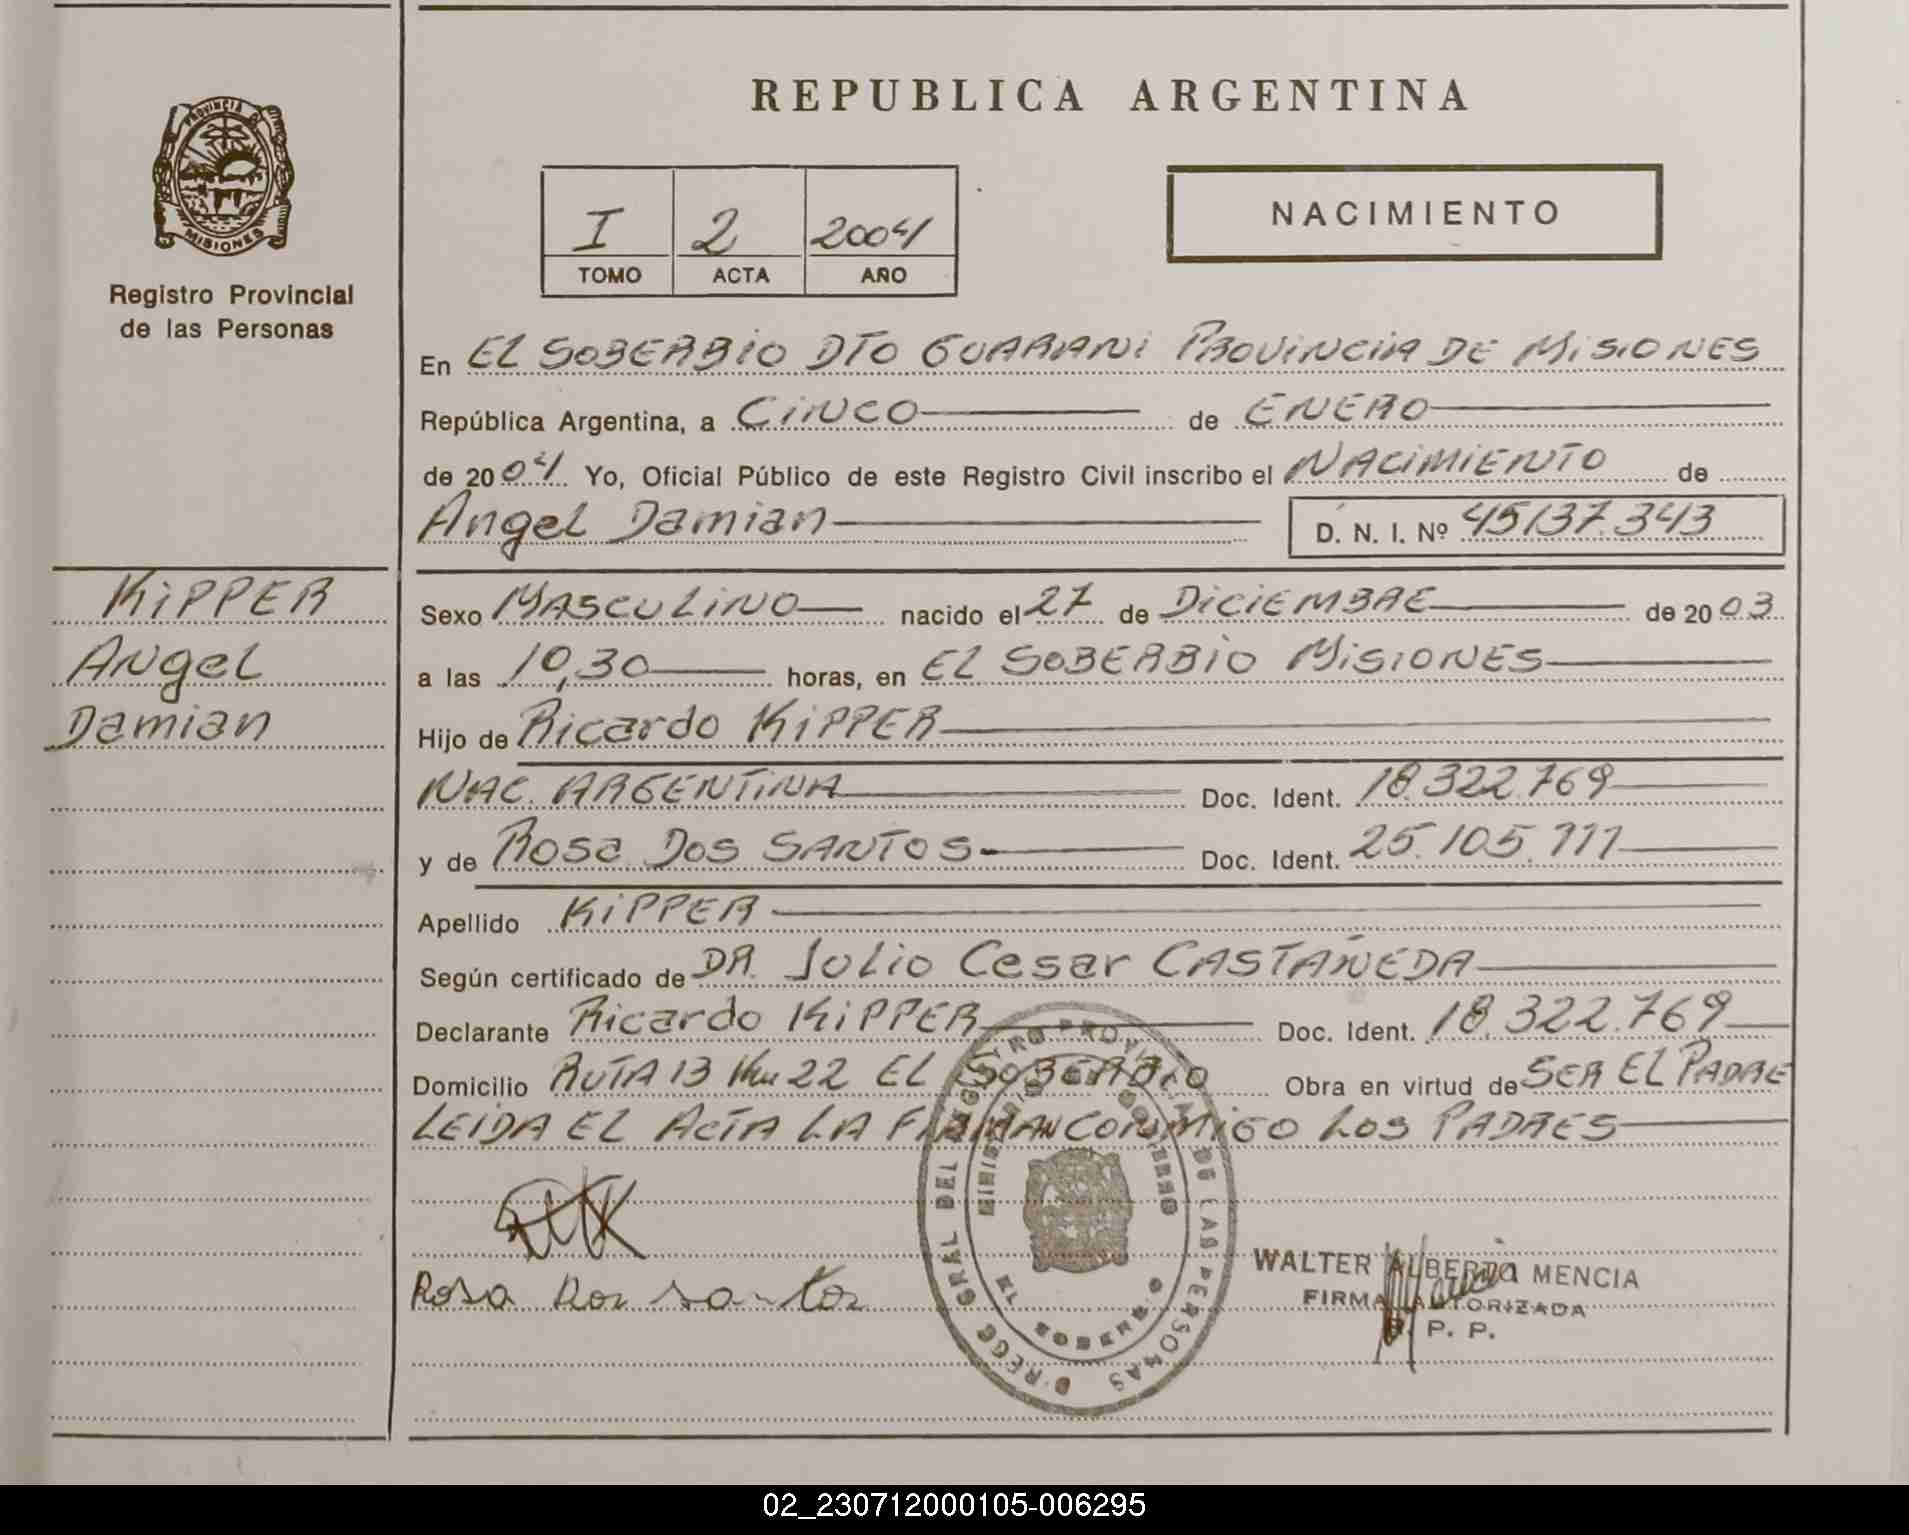 REPUBLICA ARGENTINA
PROVINCIA DE
MISIONES
Registro Provincial
de las Personas
I 2 2004
TOMO ACTA AÑO
NACIMIENTO
En EL SOBERBIO DTO GUARANI PROVINCIA DE MISIONES
República Argentina, a CINCO de ENERO
de 2004 Yo, Oficial Público de este Registro Civil inscribo el NACIMIENTO de
Angel Damian D. N. I. Nº 45137.343
KIPPER
Angel
Damian
Sexo MASCULINO nacido el 27 de DICIEMBRE de 2003
a las 10,30 horas, en EL SOBERBIO MISIONES
Hijo de Ricardo KIPPER
NAC. ARGENTINA Doc. Ident. 18.322.769
y de Rosa DOS SANTOS Doc. Ident. 25.105.111
Apellido KIPPER
Según certificado de DR. Julio Cesar CASTAÑEDA
Declarante Ricardo KIPPER Doc. Ident. 18.322.769
Domicilio RUTA 13 Km 22 EL SOBERBIO Obra en virtud de SER EL PADRE
LEIDA EL ACTA LA FIRMAN CONMIGO LOS PADRES
Rosa Dos santos
WALTER ALBERTO MENCIA
FIRMA AUTORIZADA
R. P. P.
MINISTERIO DE GOBIERNO
EL SOBERBIO
02_230712000105-006295